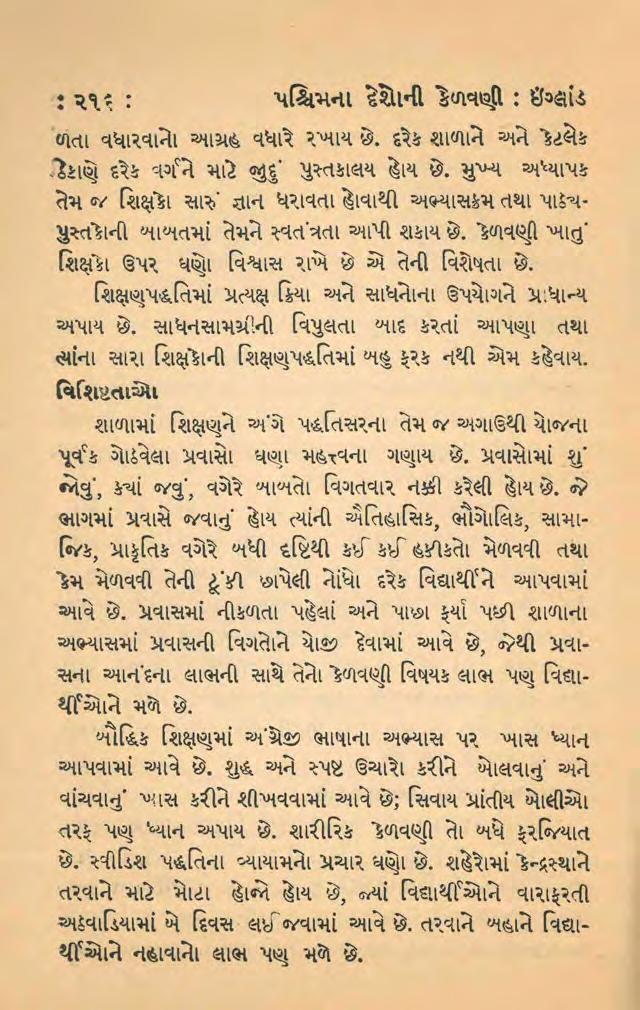 : ૨૧૬ : પશ્ચિમના દેશોની કેળવણી : ઇંગ્લાંડ
ળતા વધારવાનો આગ્રહ વધારે રખાય છે. દરેક શાળાને અને કેટલેક
ઠેકાણે દરેક વર્ગને માટે જુદું પુસ્તકાલય હોય છે. મુખ્ય અધ્યાપક
તેમ જ શિક્ષકો સારું જ્ઞાન ધરાવતા હોવાથી અભ્યાસક્રમ તથા પાઠ્ય-
પુસ્તકોની બાબતમાં તેમને સ્વતંત્રતા આપી શકાય છે. કેળવણી ખાતું
શિક્ષકો ઉપર ઘણો વિશ્વાસ રાખે છે એ તેની વિશેષતા છે.
શિક્ષણપદ્ધતિમાં પ્રત્યક્ષ ક્રિયા અને સાધનોના ઉપયોગને પ્રાધાન્ય
અપાય છે. સાધનસામગ્રીની વિપુલતા બાદ કરતાં આપણા તથા
ત્યાંના સારા શિક્ષકોની શિક્ષણપદ્ધતિમાં બહુ ફરક નથી એમ કહેવાય.
વિશિષ્ટતાઓ
શાળામાં શિક્ષણને અંગે પદ્ધતિસરના તેમ જ અગાઉથી યોજના
પૂર્વક ગોઠવેલા પ્રવાસો ઘણા મહત્ત્વના ગણાય છે. પ્રવાસોમાં શું
જોવું, ક્યાં જવું, વગેરે બાબતો વિગતવાર નક્કી કરેલી હોય છે. જે
ભાગમાં પ્રવાસે જવાનું હોય ત્યાંની ઐતિહાસિક, ભૌગોલિક, સામા-
જિક, પ્રાકૃતિક વગેરે બધી દૃષ્ટિથી કઈ કઈ હકીકતો મેળવવી તથા
કેમ મેળવવી તેની ટૂંકી છાપેલી નોંધો દરેક વિદ્યાર્થીને આપવામાં
આવે છે. પ્રવાસમાં નીકળતા પહેલાં અને પાછા ફર્યા પછી શાળાના
અભ્યાસમાં પ્રવાસની વિગતોને યોજી દેવામાં આવે છે, જેથી પ્રવા-
સના આનંદના લાભની સાથે તેનો કેળવણી વિષયક લાભ પણ વિદ્યા-
ર્થીઓને મળે છે.
બૌદ્ધિક શિક્ષણમાં અંગ્રેજી ભાષાના અભ્યાસ પર ખાસ ધ્યાન
આપવામાં આવે છે. શુદ્ધ અને સ્પષ્ટ ઉચારો કરીને બોલવાનું અને
વાંચવાનું ખાસ કરીને શીખવવામાં આવે છે; સિવાય પ્રાંતીય બોલીઓ
તરફ પણ ધ્યાન અપાય છે. શારીરિક કેળવણી તો બધે ફરજિયાત
છે. સ્વીડિશ પદ્ધતિના વ્યાયામનો પ્રચાર ઘણો છે. શહેરોમાં કેન્દ્રસ્થાને
તરવાને માટે મોટા હોજો હોય છે, જ્યાં વિદ્યાર્થીઓને વારાફરતી
અઠવાડિયામાં બે દિવસ લઈ જવામાં આવે છે. તરવાને બહાને વિદ્યા-
ર્થીઓને નહાવાનો લાભ પણ મળે છે.